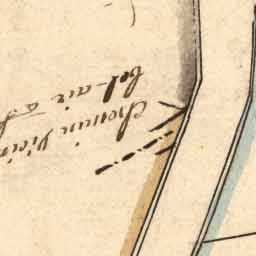 Chemin Vicin
bel-air à